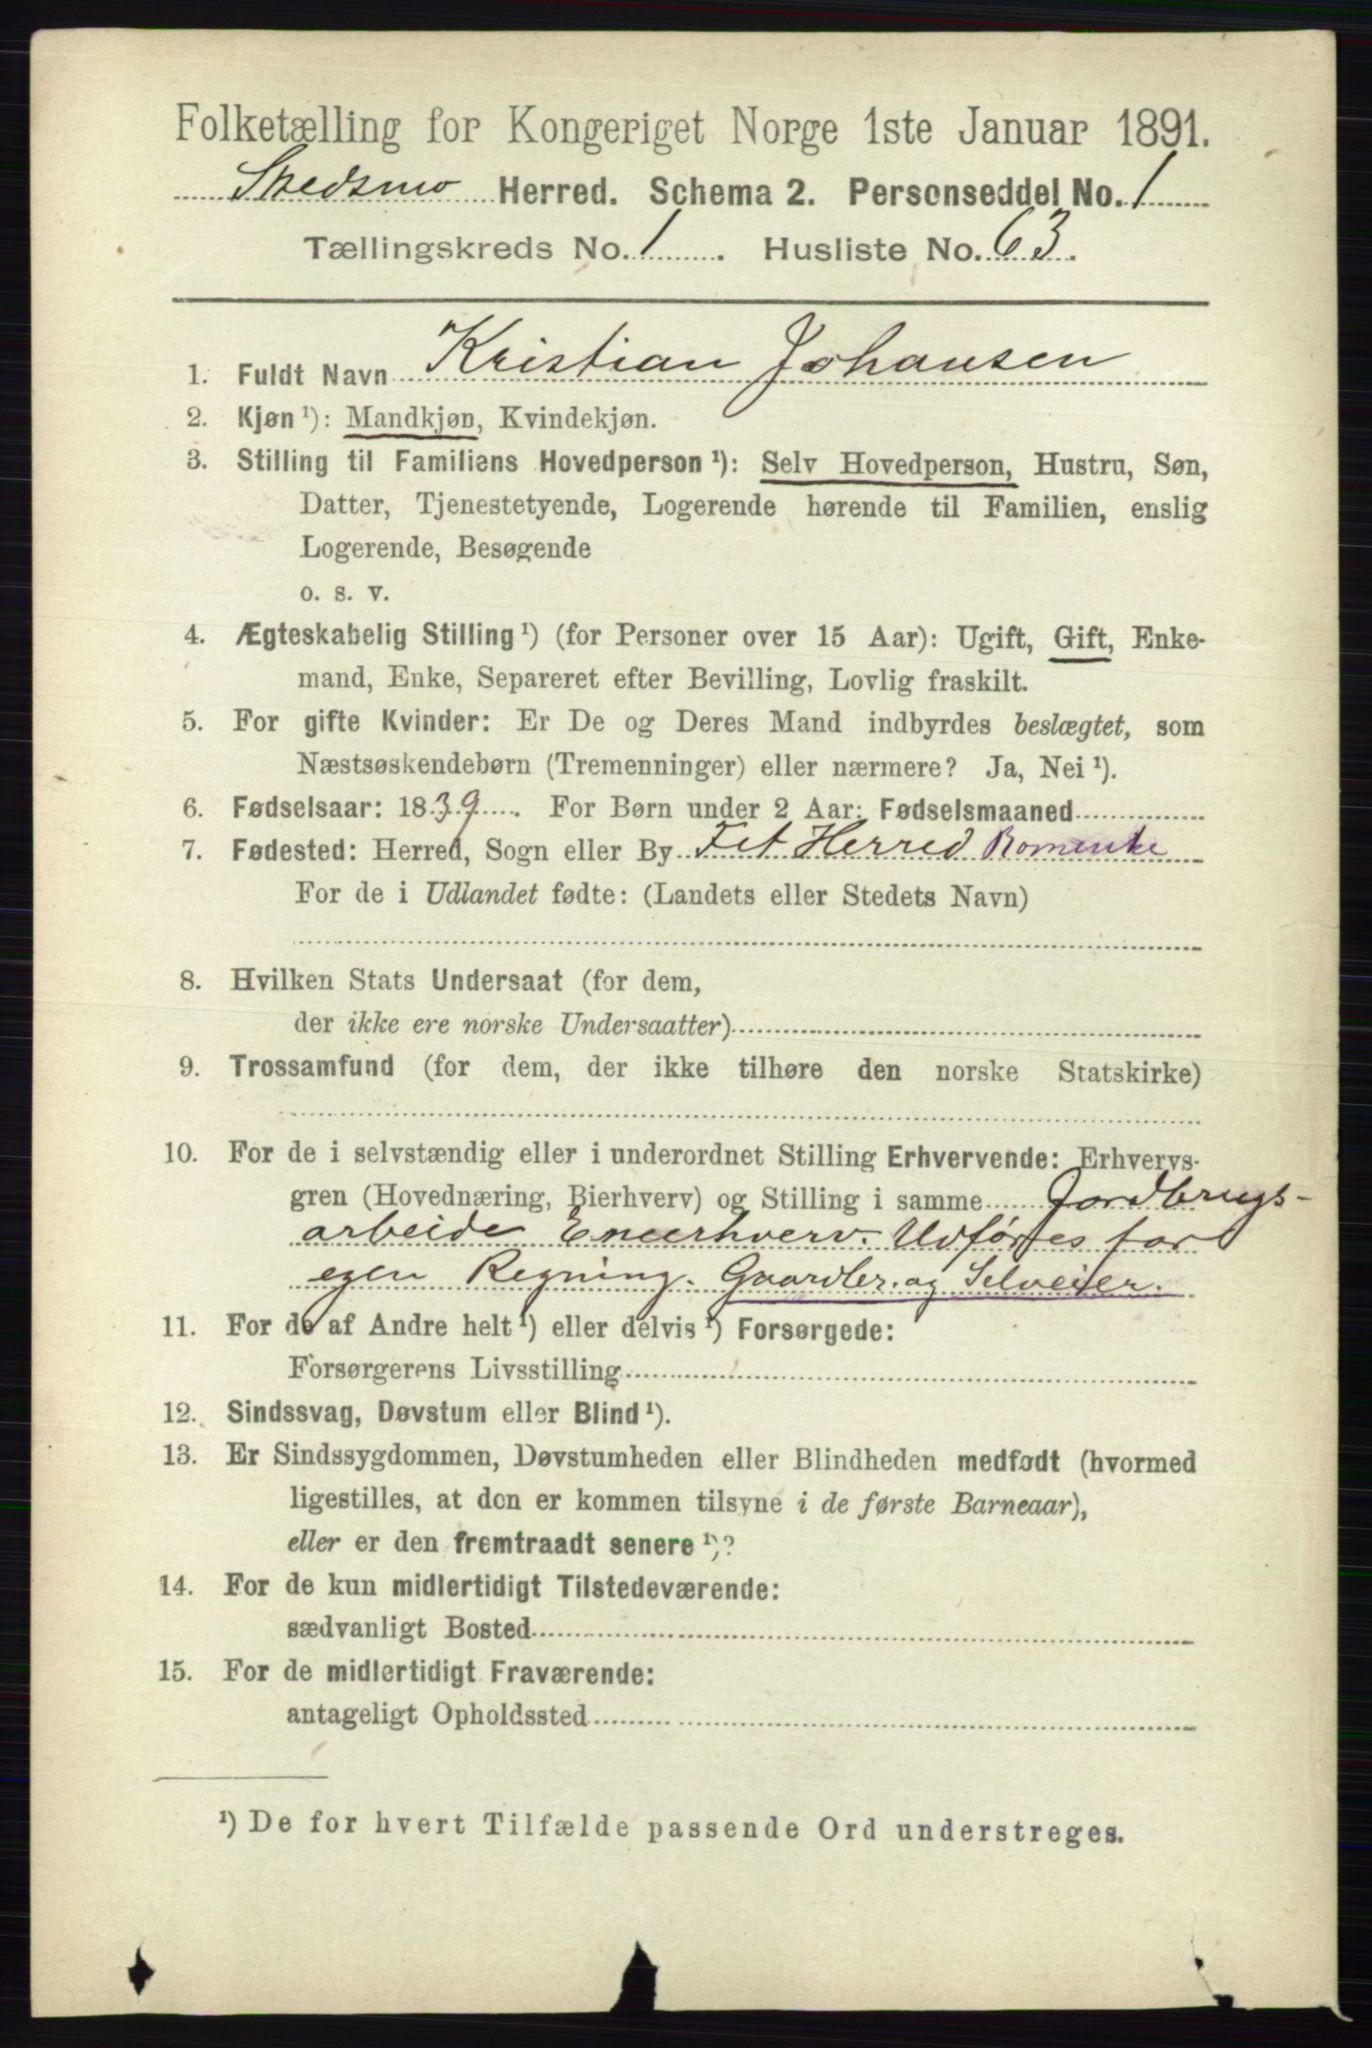 Folketælling for Kongeriget Norge 1ste Januar 1891.
Skedsmo Herred. Schema 2. Personseddel No. 1
Tællingskreds No. 1. Husliste No. 63.
1. Fuldt Navn Kristian Johansen
2. Kjøn ¹): Mandkjøn, Kvindekjøn.
3. Stilling til Familiens Hovedperson ¹): Selv Hovedperson, Hustru, Søn,
Datter, Tjenestetyende, Logerende hørende til Familien, enslig
Logerende, Besøgende
o. s. v.
4. Ægteskabelig Stilling ¹) (for Personer over 15 Aar): Ugift, Gift, Enke-
mand, Enke, Separeret efter Bevilling, Lovlig fraskilt.
5. For gifte Kvinder: Er De og Deres Mand indbyrdes beslægtet, som
Næstsøskendebørn (Tremenninger) eller nærmere? Ja, Nei ¹).
6. Fødselsaar: 1839. For Børn under 2 Aar: Fødselsmaaned
7. Fødested: Herred, Sogn eller By Fet Herred
For de i Udlandet fødte: (Landets eller Stedets Navn)
8. Hvilken Stats Undersaat (for dem,
der ikke ere norske Undersaatter)
9. Trossamfund (for dem, der ikke tilhøre den norske Statskirke)
10. For de i selvstændig eller i underordnet Stilling Erhvervende: Erhvervs-
gren (Hovednæring, Bierhverv) og Stilling i samme Jordbrugs-
arbeide Eneerhverv. Udføres for
egen Regning. Gaardbr. og Selveier.
11. For de af Andre helt ¹) eller delvis ¹) Forsørgede:
Forsørgerens Livsstilling
12. Sindssvag, Døvstum eller Blind ¹).
13. Er Sindssygdommen, Døvstumheden eller Blindheden medfødt (hvormed
ligestilles, at den er kommen tilsyne i de første Barneaar),
eller er den fremtraadt senere ¹)?
14. For de kun midlertidigt Tilstedeværende:
sædvanligt Bosted
15. For de midlertidigt Fraværende:
antageligt Opholdssted
¹) De for hvert Tilfælde passende Ord understreges.